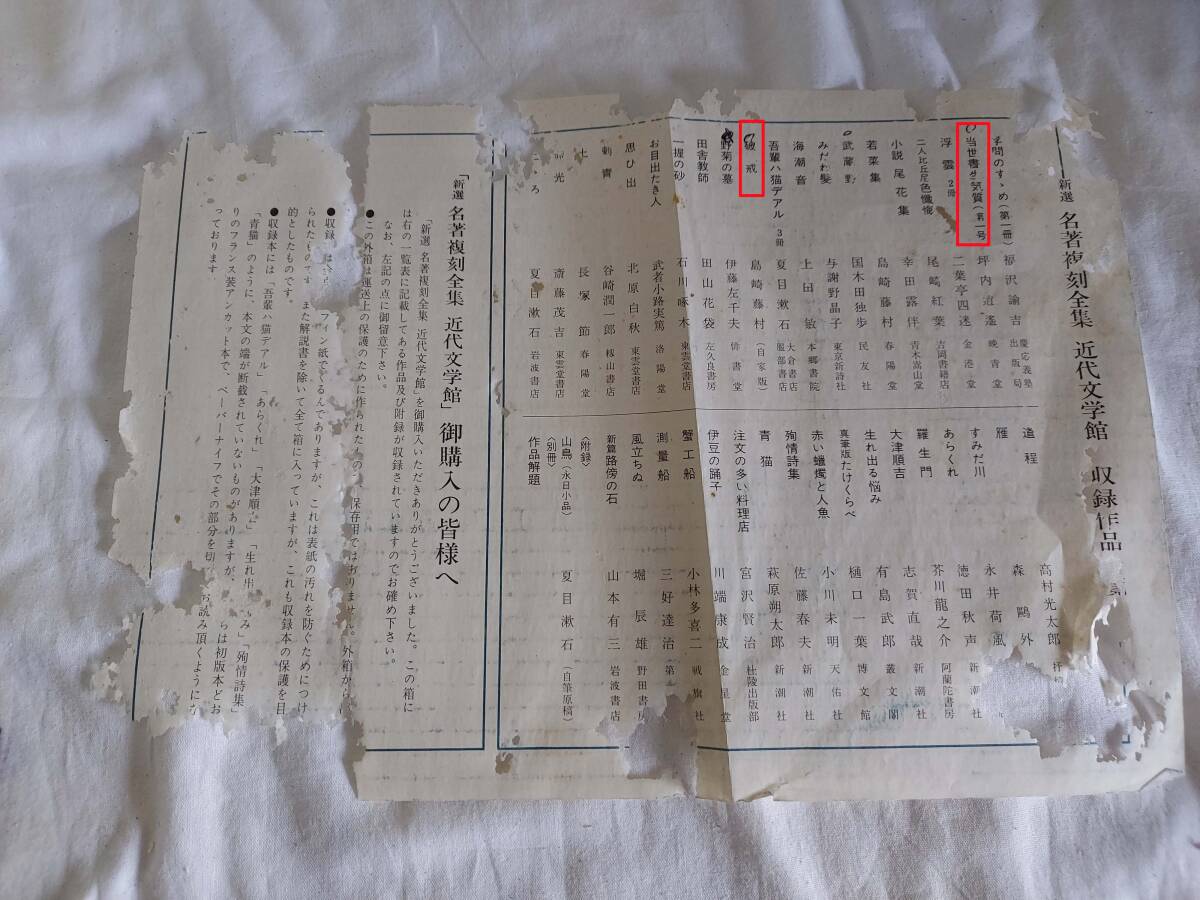 新選 名著複刻全集 近代文学館 収録作品
学問のすゝめ(第一冊) 福沢諭吉 慶応義塾出版局
当世書生気質(第一号 坪内逍遙 晩青堂
浮雲 2冊 二葉亭四迷 金港堂
二人比丘尼色懺悔 尾崎紅葉 吉岡書籍店
小説 尾花集 幸田露伴 青木嵩山堂
若菜集 島崎藤村 春陽堂
武蔵野 国木田独歩 民友社
みだれ髪 与謝野晶子 東京新詩社
海潮音 上田敏 本郷書院
吾輩ハ猫デアル 3冊 夏目漱石 大倉書店 服部書店
破戒 島崎藤村 (自家版)
野菊の墓 伊藤左千夫 俳書堂
田舎教師 田山花袋 左久良書房
一握の砂 石川啄木 東雲堂書店
お目出たき人 武者小路実篤 洛陽堂
思ひ出 北原白秋 東雲堂書店
刺青 谷崎潤一郎 籾山書店
土 長塚節 春陽堂
光 斎藤茂吉 東雲堂書店
ろ 夏目漱石 岩波書店
道程 高村光太郎
雁 森鷗外
すみだ川 永井荷風
あらくれ 徳田秋声 新潮社
羅生門 芥川龍之介 阿蘭陀書房
大津順吉 志賀直哉 新潮社
生れ出る悩み 有島武郎 叢文閣
真筆版たけくらべ 樋口一葉 博文館
赤い蠟燭と人魚 小川未明 天佑社
殉情詩集 佐藤春夫 新潮社
青猫 萩原朔太郎 新潮社
注文の多い料理店 宮沢賢治 杜陵出版部
伊豆の踊子 川端康成 金星堂
蟹工船 小林多喜二 戦旗社
測量船 三好達治 第一
風立ちぬ 堀辰雄 野田書房
新篇路傍の石 山本有三 岩波書店
〈附録〉
山鳥(永日小品) 夏目漱石 (自筆原稿)
〈別冊〉
作品解題
「新選 名著複刻全集 近代文学館」御購入の皆様へ
「新選 名著複刻全集 近代文学館」を御購入いただきありがとうございました。この箱に
は右の一覧表に記載してある作品及び附録が収録されていますのでお確め下さい。
なお、左記の点に御留意下さい。
●この外箱は運送上の保護のために作られたもので、保存用ではありません。外箱から
●収録 フィン紙でくるんでありますが、これは表紙の汚れを防ぐためにつけ
られたものです。また解説書を除いて全て箱に入っていますが、これも収録本の保護を目
的としたものです。
●収録本には「吾輩ハ猫デアル」「あらくれ」「大津順吉」「生れ出 み」「殉情詩集」
「青猫」のように、本文の端が断裁されていないものがありますが、 らは初版本どお
りのフランス装アンカット本で、ペーパーナイフでその部分を切 お読み頂くようにな
っております